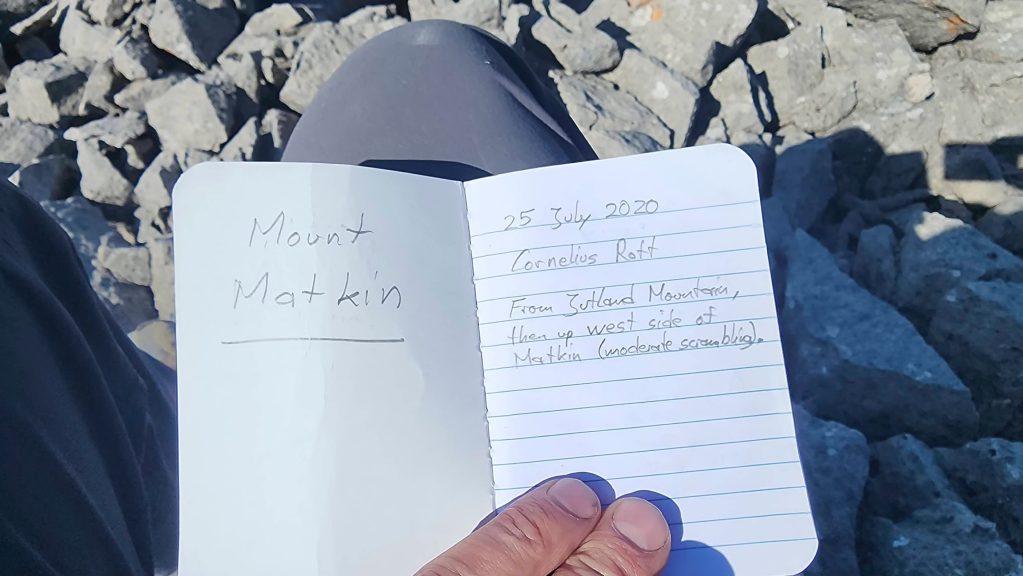 Mount
Matkin
25 July 2020
Cornelius Rott
From Jutland Mountain,
then up west side of
Matkin (moderate scrambling).